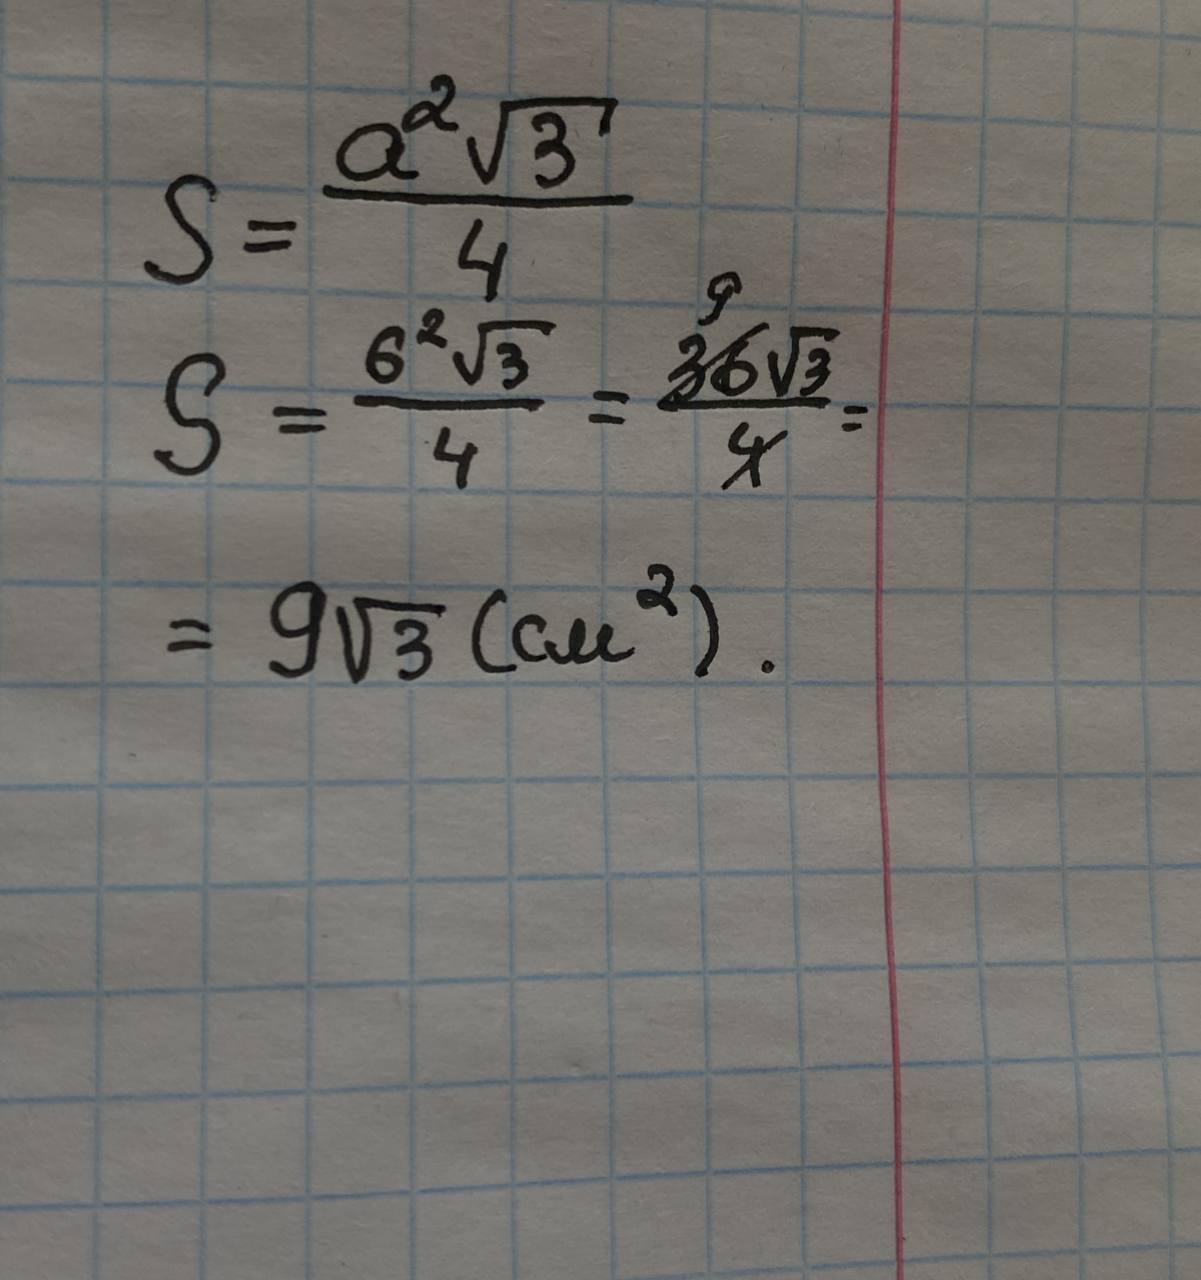 S = a²√3 / 4
S = 6²√3 / 4 = 9 36√3 / 4 =
= 9√3 (см²).